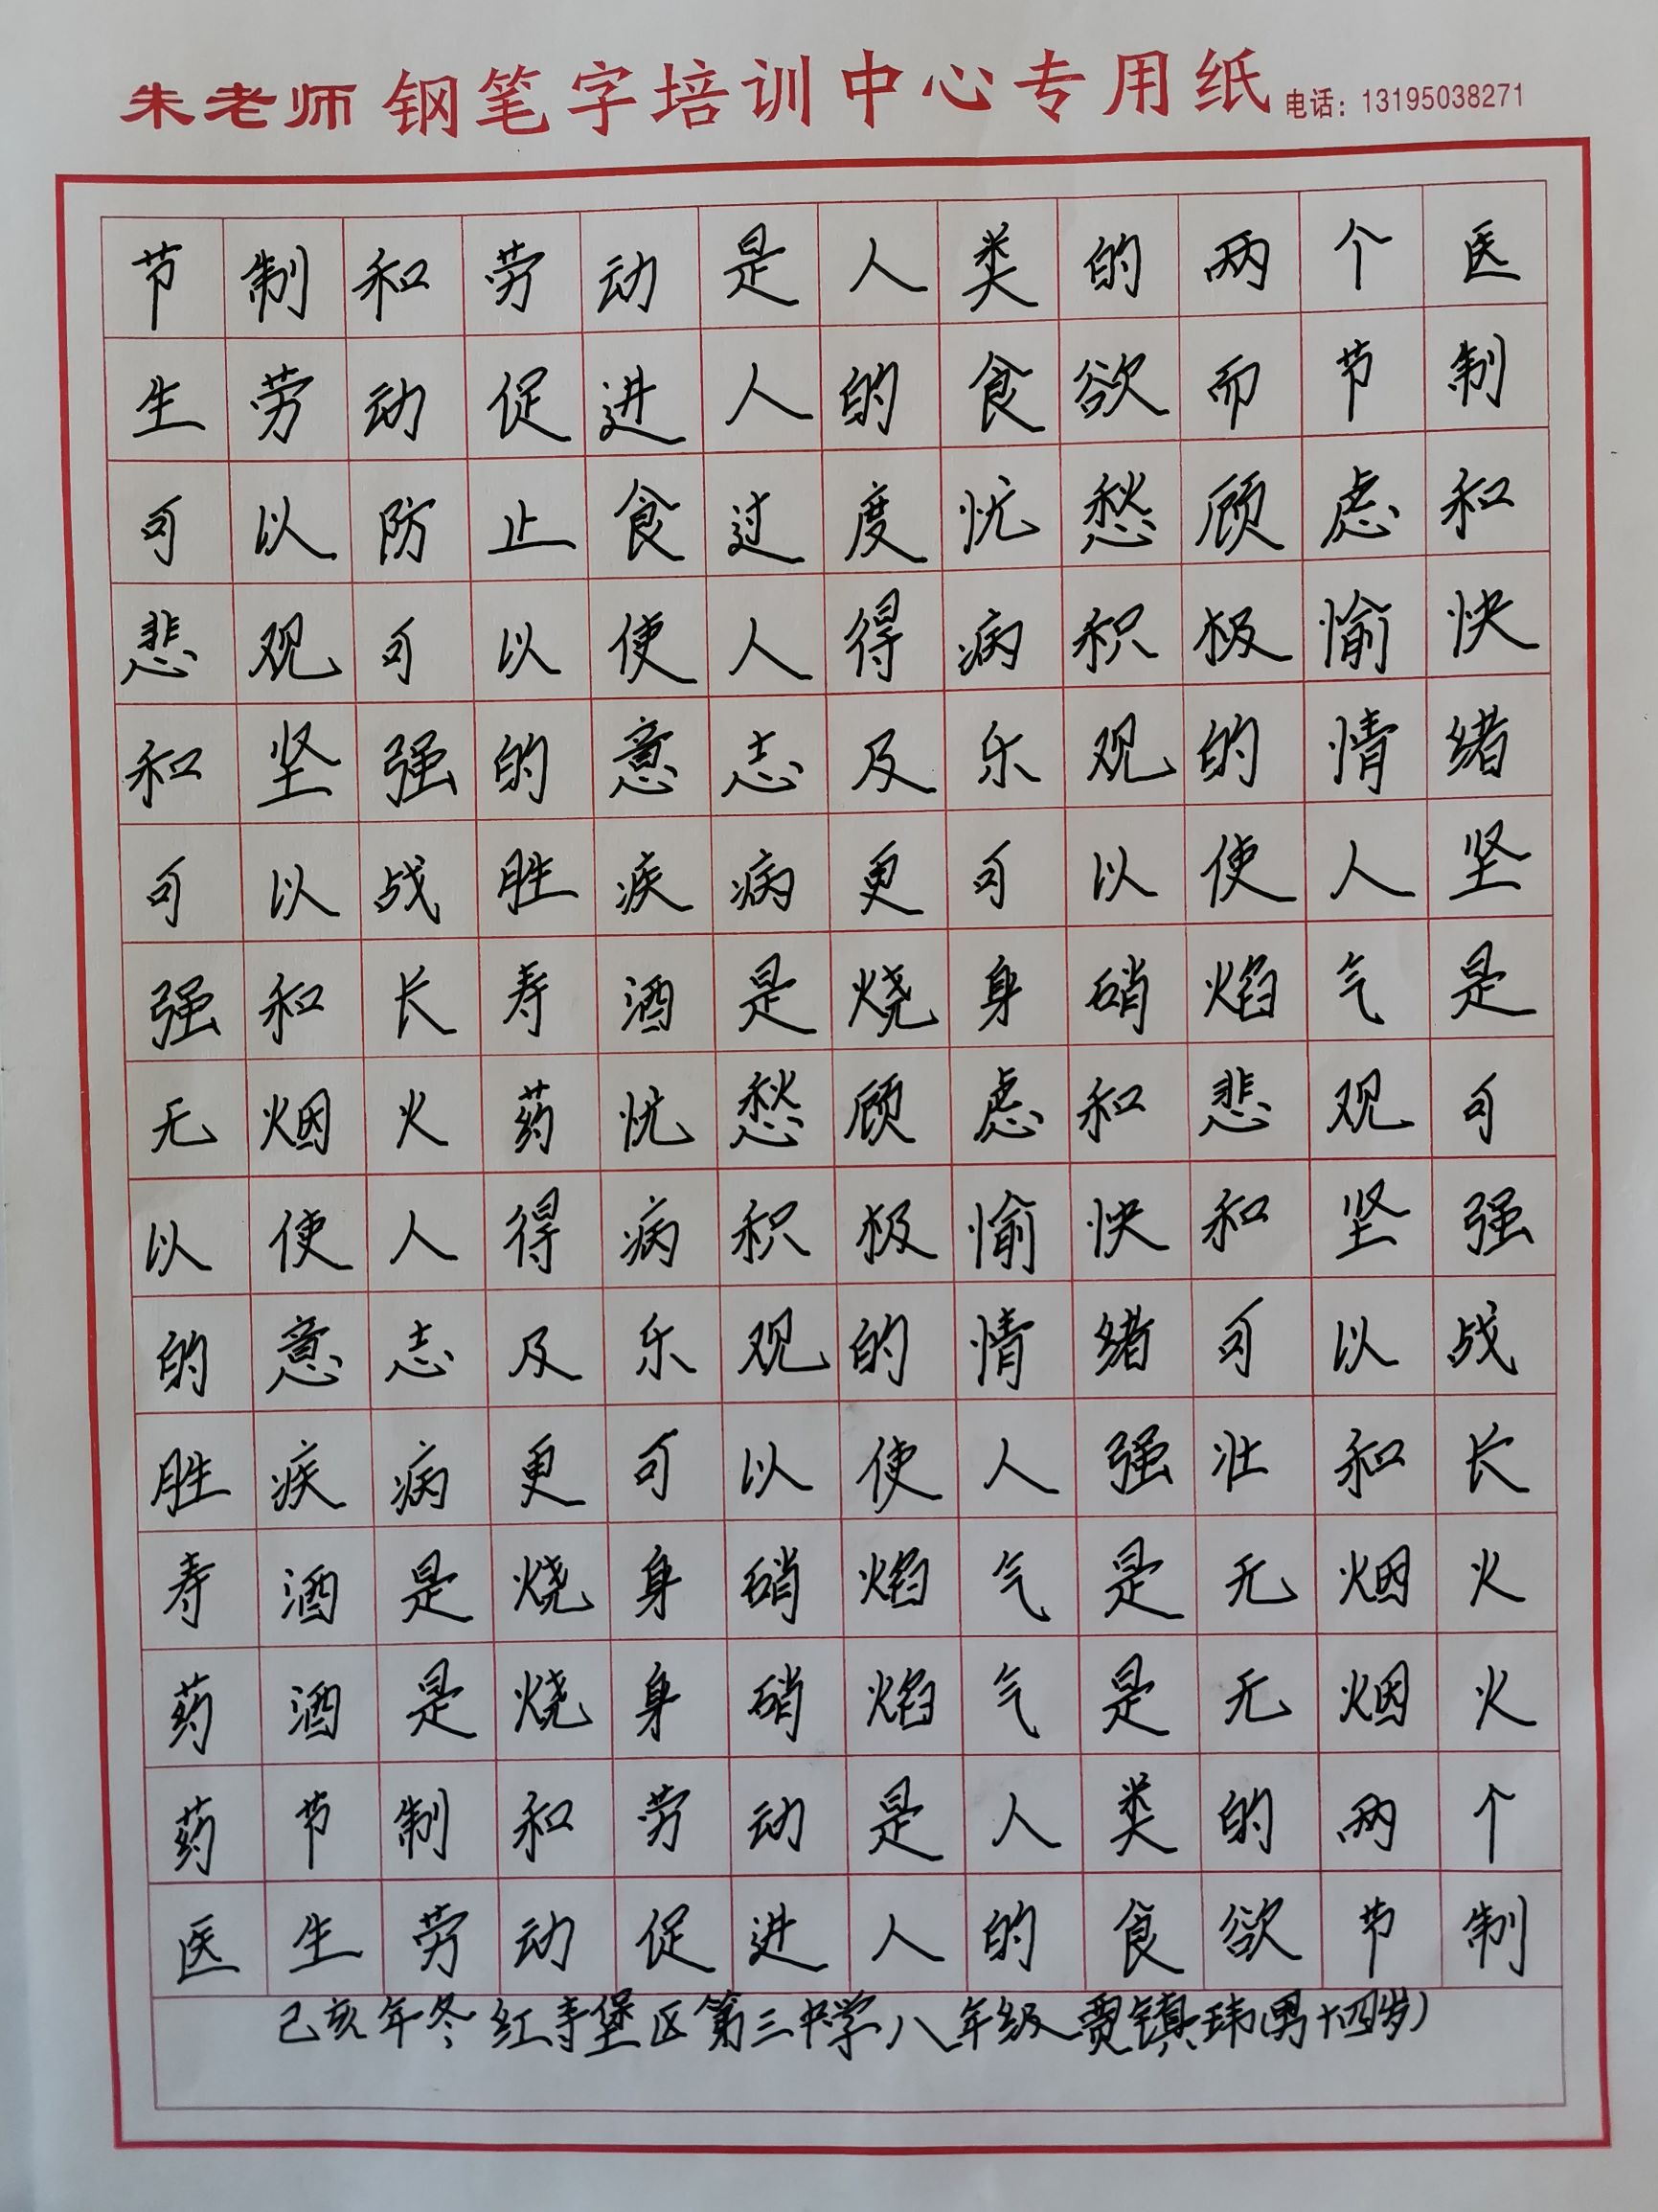 朱老师 钢笔字培训中心专用纸 电话：13195038271
节制和劳动是人类的两个医
生劳动促进人的食欲而节制
可以防止食过度忧愁顾虑和
悲观可以使人得病积极愉快
和坚强的意志及乐观的情绪
可以战胜疾病更可以使人坚
强和长寿酒是烧身硝焰气是
无烟火药忧愁顾虑和悲观可
以使人得病积极愉快和坚强
的意志及乐观的情绪可以战
胜疾病更可以使人强壮和长
寿酒是烧身硝焰气是无烟火
药酒是烧身硝焰气是无烟火
药节制和劳动是人类的两个
医生劳动促进人的食欲节制
己亥年冬 红寺堡区第三中学八年级贾镇玮(男十四岁)